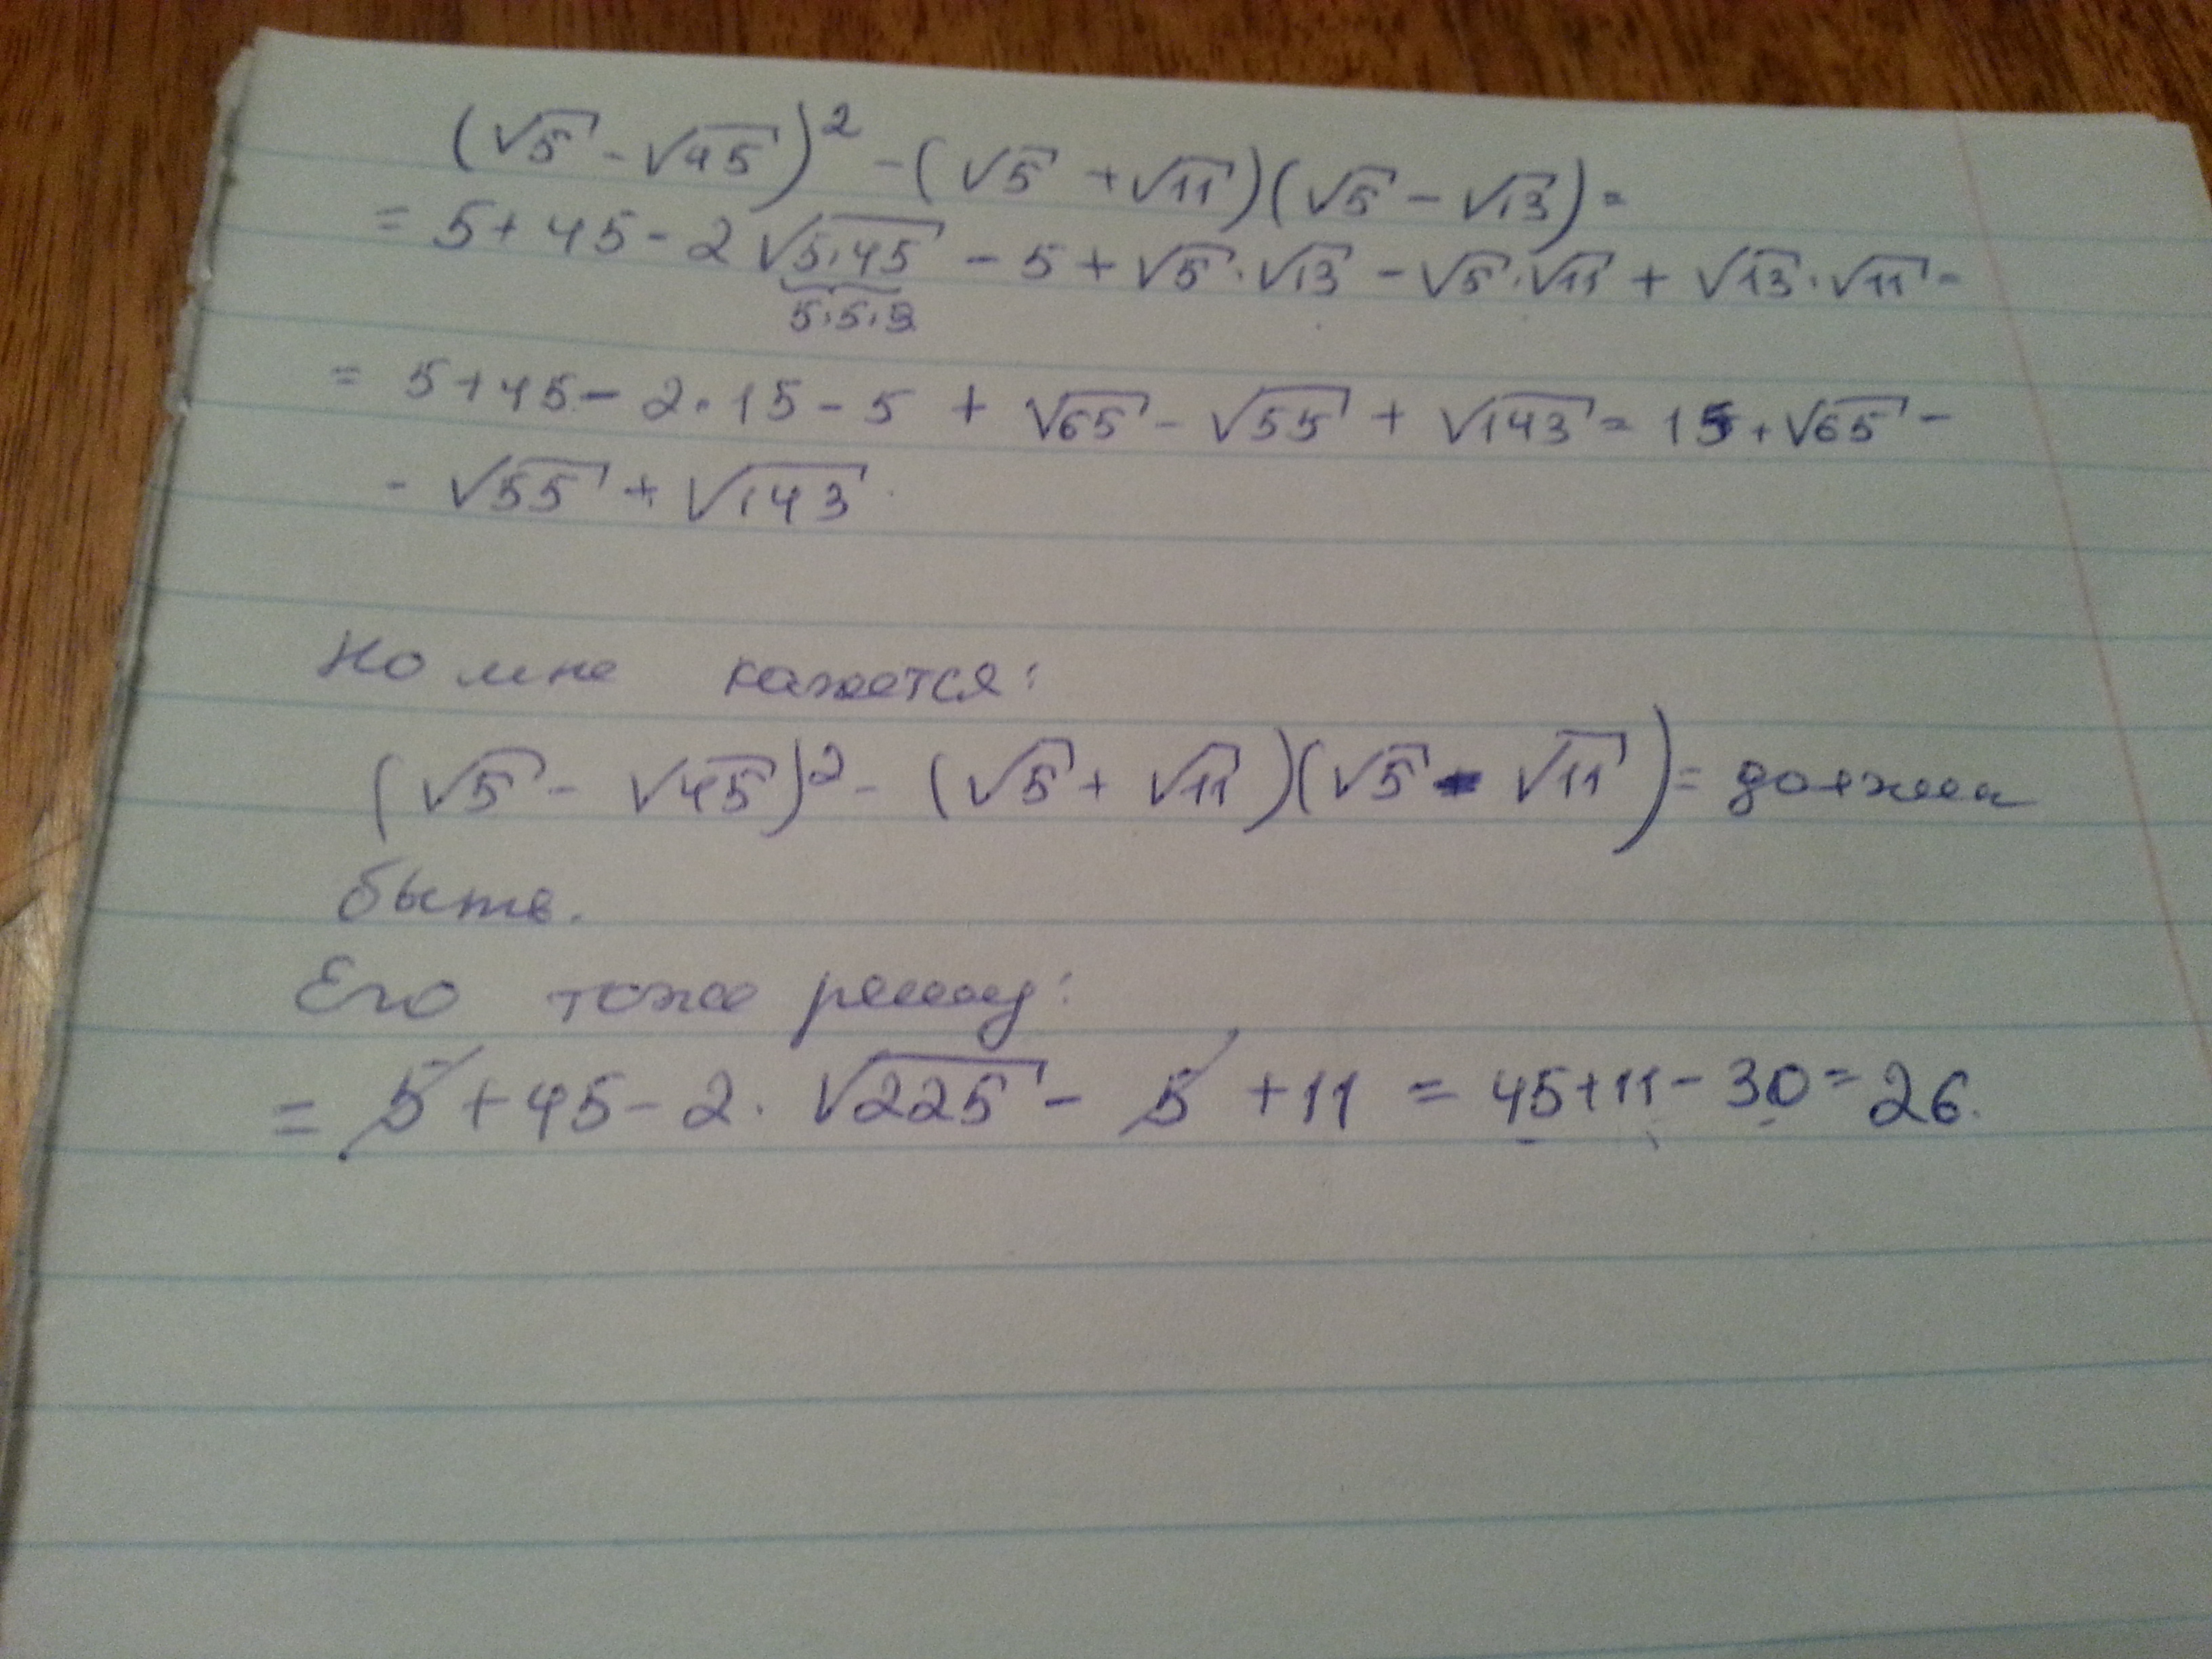 (√5 - √45)² - (√5 + √11)(√5 - √13) =
= 5 + 45 - 2√5·45 - 5 + √5·√13 - √5·√11 + √13·√11 =
5·5·9
= 5 + 45 - 2·15 - 5 + √65 - √55 + √143 = 15 + √65 -
- √55 + √143.
Но мне кажется:
(√5 - √45)² - (√5 + √11)(√5 - √11) = должен
быть.
Его тоже решу:
= 5 + 45 - 2·√225 - 5 + 11 = 45 + 11 - 30 = 26.